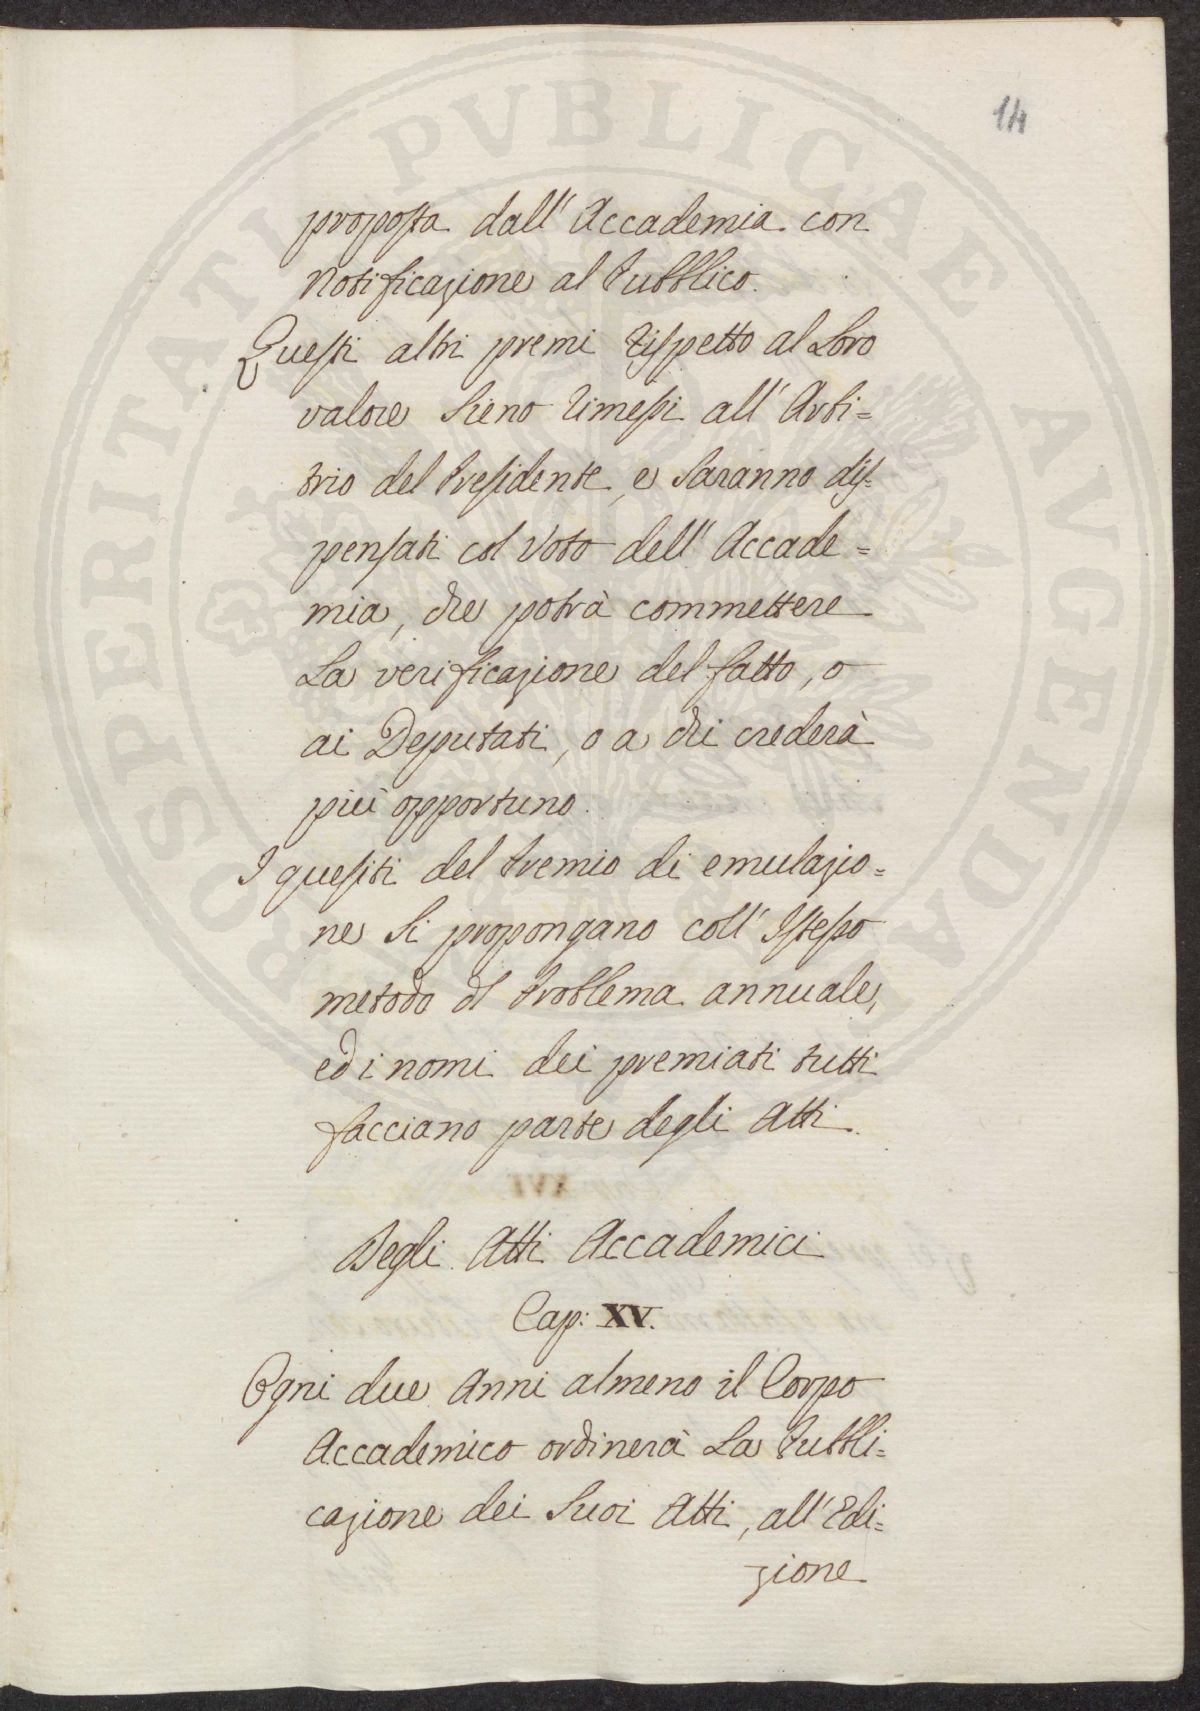 PROSPERITATI PVBLICAE AVGENDAE
14
proposta dall' Accademia con
Notificazione al Pubblico.
Questi altri premi rispetto al Loro
valore Sieno rimessi all' Arbi=
trio del Presidente, e Saranno dis=
pensati col Voto dell' Accade=
mia, che potrà commettere
La verificazione del fatto, o
ai Deputati, o a chi crederà
più opportuno.
I quesiti del Premio di emulazio=
ne Si propongano coll' Istesso
metodo del Problema annuale,
ed i nomi dei premiati tutti
facciano parte degli Atti.
Degli Atti Accademici
Cap: XV.
Ogni due Anni almeno il Corpo
Accademico ordinerà La Pubbli=
cazione dei Suoi Atti, all' Edi=
zione